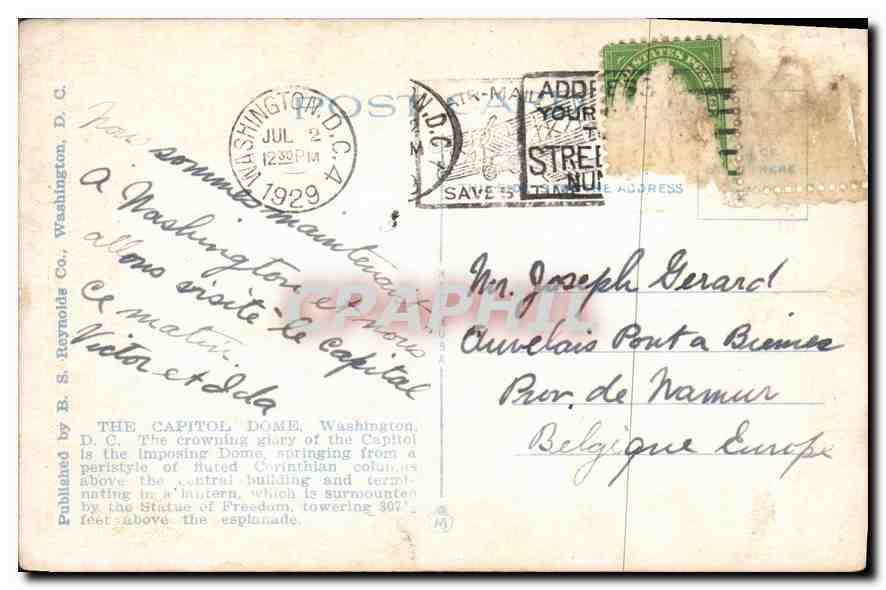 POST CARD
WASHINGTON, D.C. 4
JUL 2
12 30 PM
1929
N, D.C.
AIR-MAIL
SAVES TIME
ADDRESS
YOUR
TO
STREE
NUM
STATES POS
THE ADDRESS
CE
HERE
Nous sommes maintenant
a Washington et nous
allons visité le capital
ce matin.
Victor et Ida
Mr. Joseph Gerard
Auvelais Pont a Biemes
Prov. de Namur
Belgique Europe
THE CAPITOL DOME, Washington,
D. C. The crowning glory of the Capitol
is the imposing Dome, springing from a
peristyle of fluted Corinthian columns
above the central building and termi-
nating in a lantern, which is surmounted
by the Statue of Freedom, towering 307½
feet above the esplanade.
Published by B. S. Reynolds Co., Washington, D. C.
CPAPHIL